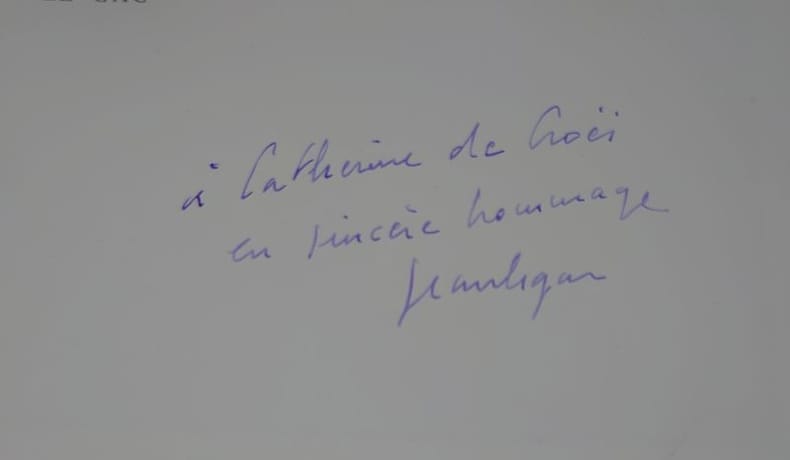 LE GAC
à Catherine de Croës
en sincère hommage
Jean Le Gac